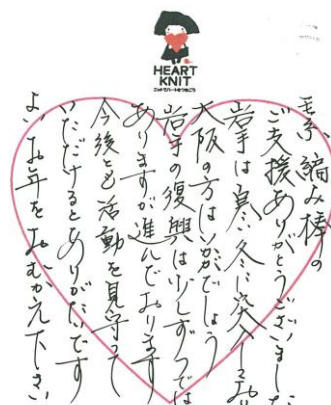 HEART
KNIT
ニットでハートをつなごう
毛糸 編み棒の
ご支援ありがとうございました
岩手は真冬に突入しており
大阪の方はいかがでしょう
岩手の復興は少しずつでは
ありますが進んでおります
今後とも活動を見守って
いただけるとありがたいです
よいお年をおむかえ下さい